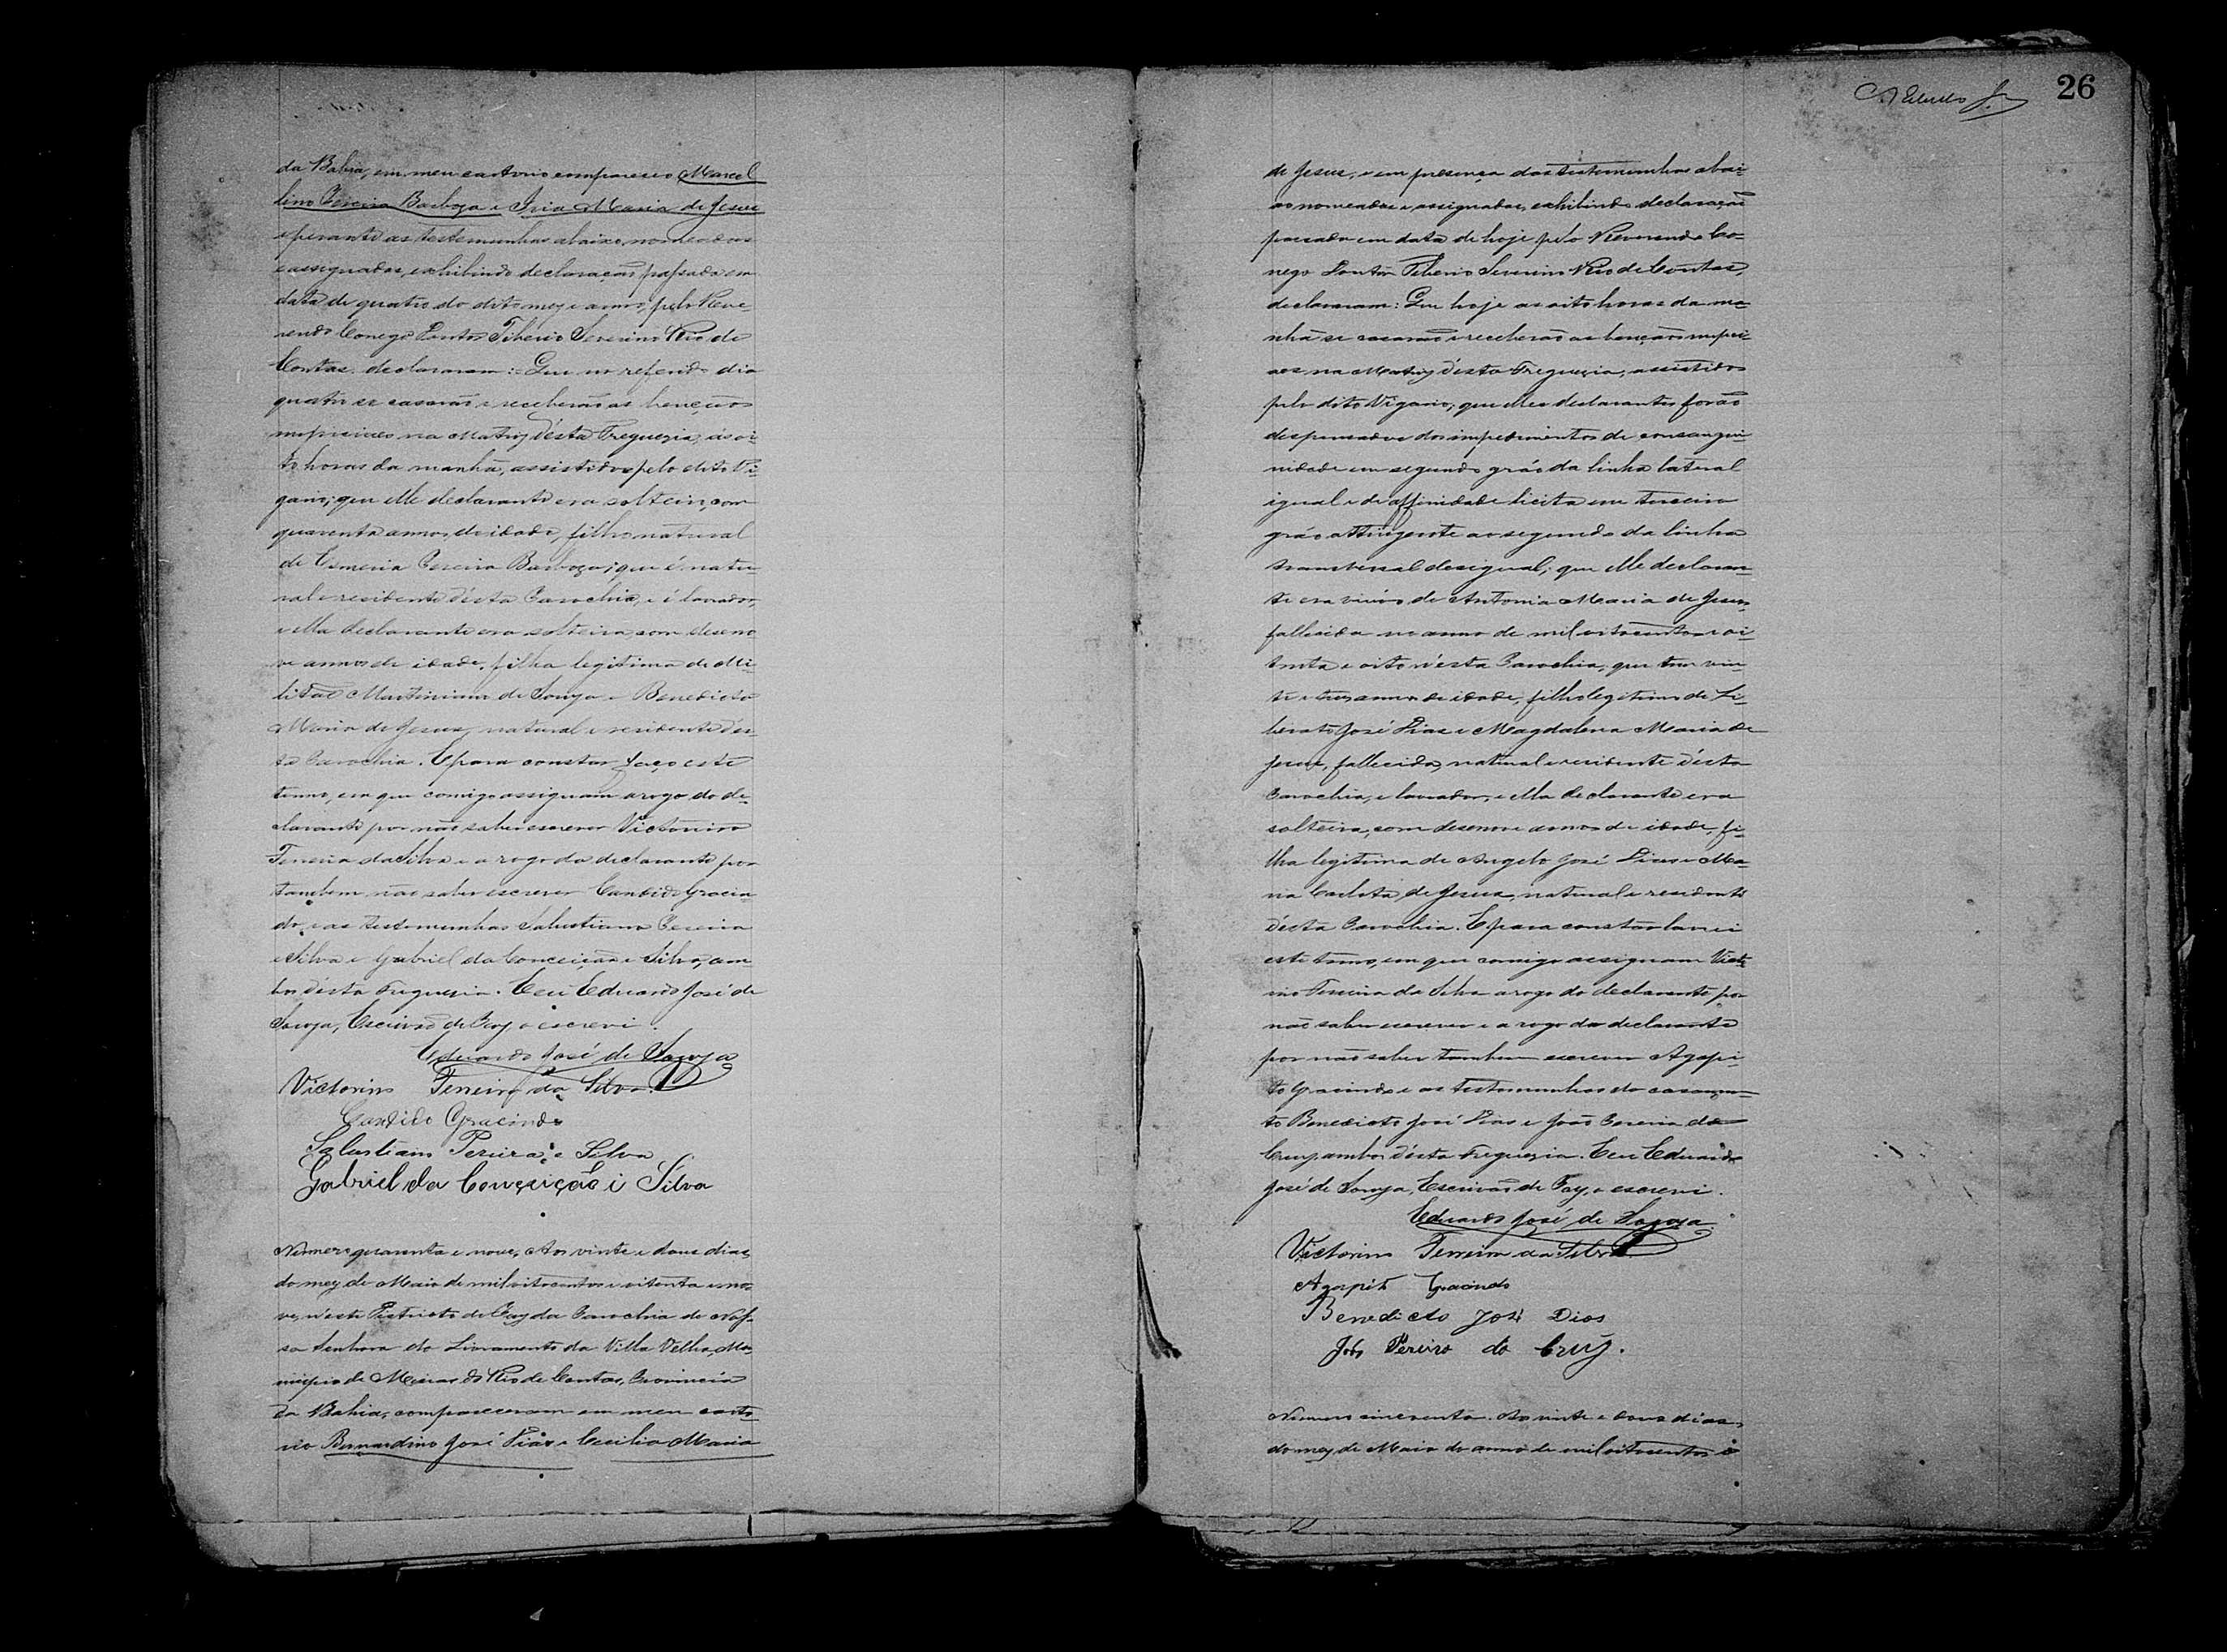 da Bahia, em meu cartorio compareceo Marcel
lino Pereira Barboza e Iria Maria de Jesus
e perante as testemunhas abaixo nomeadas
e assignadas, exhibindo declaração passada em
data de quatro do dito mez e anno, pelo Reve-
rendo Conego Doutor Tiberio Severino Rio de
Contas, declararam: Que no referido dia
quatro se casarão e receberão as bençãos
nupciaes na Matriz désta Freguezia, ás oi-
to horas da manhã, assistidos pelo dito Vi-
gario; que elle declarante era solteiro, com
quarenta annos de idade, filho natural
de Esmeria Pereira Barboza; que é natu-
ral e residente désta Parochia, e é lavrador,
e ella declarante era solteira, com deseno
ve annos de idade, filha legitima de Mi-
litão Martiniano de Souza e Benedicta
Maria de Jesus, natural e residente dés-
ta Parochia. E para constar faço este
termo, em que comigo assignam a rogo do de-
clarante por não saber escrever Victorino
Ferreira da Silva e a rogo da declarante por
tambem não saber escrever Candido Gracin-
do, e as testemunhas Salustiano Pereira
e Silva e Gabriel da Conceição e Silva, am-
bos désta Freguezia. Eeu Eduardo José de
Souza, Escrivão de Paz o escrevi.
Eduardo José de Souza
Victorino Ferreira da Silva
Candido Gracindo
Salustiano Pereira e Silva
Gabriel da Conçeição i Silva
Numero quarenta e nove. Aos vinte e dous dias
do mez de Maio de mil oitocentos e oitenta e no-
ve, n'este Districto de Paz da Parochia de Nos-
sa Senhora do Livramento da Villa Velha, Mu-
nicipio de Minas do Rio de Contas, Provincia
da Bahia, compareceram em meu carto-
rio Bernardino José Dias e Cecilia Maria
26
de Jesus, e em presença das testemunhas abai-
xo nomeadas e assignadas, exhibindo declaração
passada em data de hoje pelo Reverendo Co-
nego Doutor Tiberio Severino Rio de Contas,
declararam: Que hoje as oito horas da ma-
nhã se casarão e receberão as bençãos nupci-
aes na Matriz désta Freguezia, assistidos
pelo dito Vigario; que elles declarantes forão
despensados dos impedimentos de consangui-
nidade em segundo gráo da linha lateral
igual e de affinidade licita em terceiro
gráo attingente ao segundo da linha
transversal desigual; que elle declaran-
te era viuvo de Antonia Maria de Jesus,
fallecida no anno de mil oitocentos e oi-
tenta e oito n'esta Parochia, que tem vin
te e tres annos de idade, filho legitimo de Li-
berato José Dias e Magdalena Maria de
Jesus, fallecida, natural e residente désta
Parochia, e lavrador, e ella declarante era
solteira, com desenove annos de idade, fi-
lha legitima de Angelo José Dias e Ma-
ria Carlota de Jesus, natural e residente
désta Parochia. E para constar lavrei
este termo, em que comigo assignam Victo-
rino Ferreira da Silva a rogo do declarante por
não saber escrever e a rogo da declarante
por não saber tambem escrever Agapi-
to Gracindo e as testemunhas do casamen-
to Benedicto José Dias e João Pereira da
Cruz, ambos désta Freguezia. Eeu Eduardo
José de Souza, Escrivão de Paz, o escrevi.
Eduardo José de Souza
Victorino Ferreira da Silva
Agapito Gracindo
Benedicto José Dias
João Pereira da Cruz.
Numero cincoenta. Aos vinte e dous dias
do mez de Maio do anno de mil oitocentos e